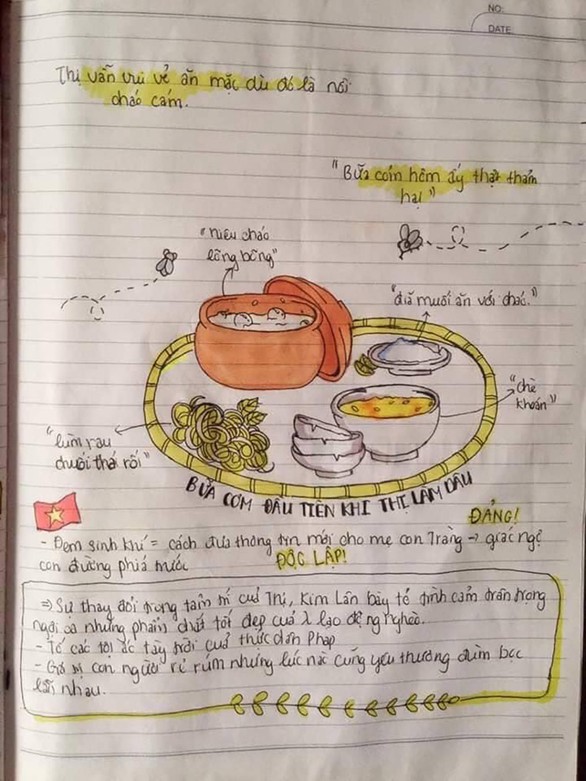 NO:
DATE
Thị vẫn vui vẻ ăn mặc dù đó là nồi
cháo cám.
"Bữa cơm hôm ấy thật thảm
hại"
"niêu cháo
lõng bõng"
"đĩa muối ăn với cháo."
"chè
khoán"
"lùm rau
chuối thái rối"
BỮA CƠM ĐẦU TIÊN KHI THỊ LÀM DÂU
ĐẢNG!
- Đem sinh khí = cách đưa thông tin mới cho mẹ con Tràng → giác ngộ
con đường phía trước
ĐỘC LẬP!
⇒ Sự thay đổi trong tâm trí của Thị, Kim Lân bày tỏ tình cảm trân trọng
ngợi ca những phẩm chất tốt đẹp của λ lao động nghèo.
- Tố cáo tội ác tày trời của thực dân Pháp
- Giá trị con người rẻ rúm nhưng lúc nào cũng yêu thương đùm bọc
lẫn nhau.